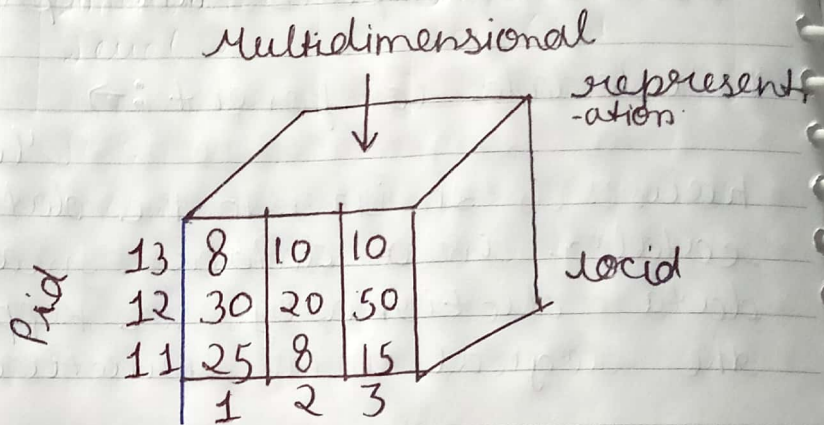 Multidimensional
represent
-ation.
Pid
13 8 10 10
12 30 20 50
11 25 8 15
1 2 3
locid